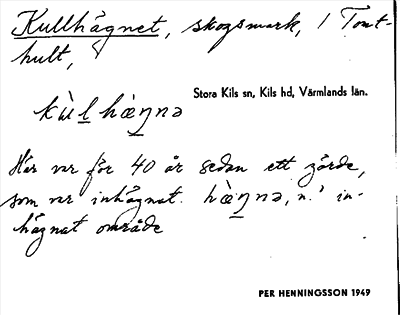 Kullhägnet, skogsmark, 1 Tomt-
hult,
Stora Kils sn, Kils hd, Värmlands län.
kùl hæ̀ŋnə
Här var för 40 år sedan ett gärde,
som var inhägnat. hæ̀ŋnə, n.' in-
hägnat område
PER HENNINGSSON 1949